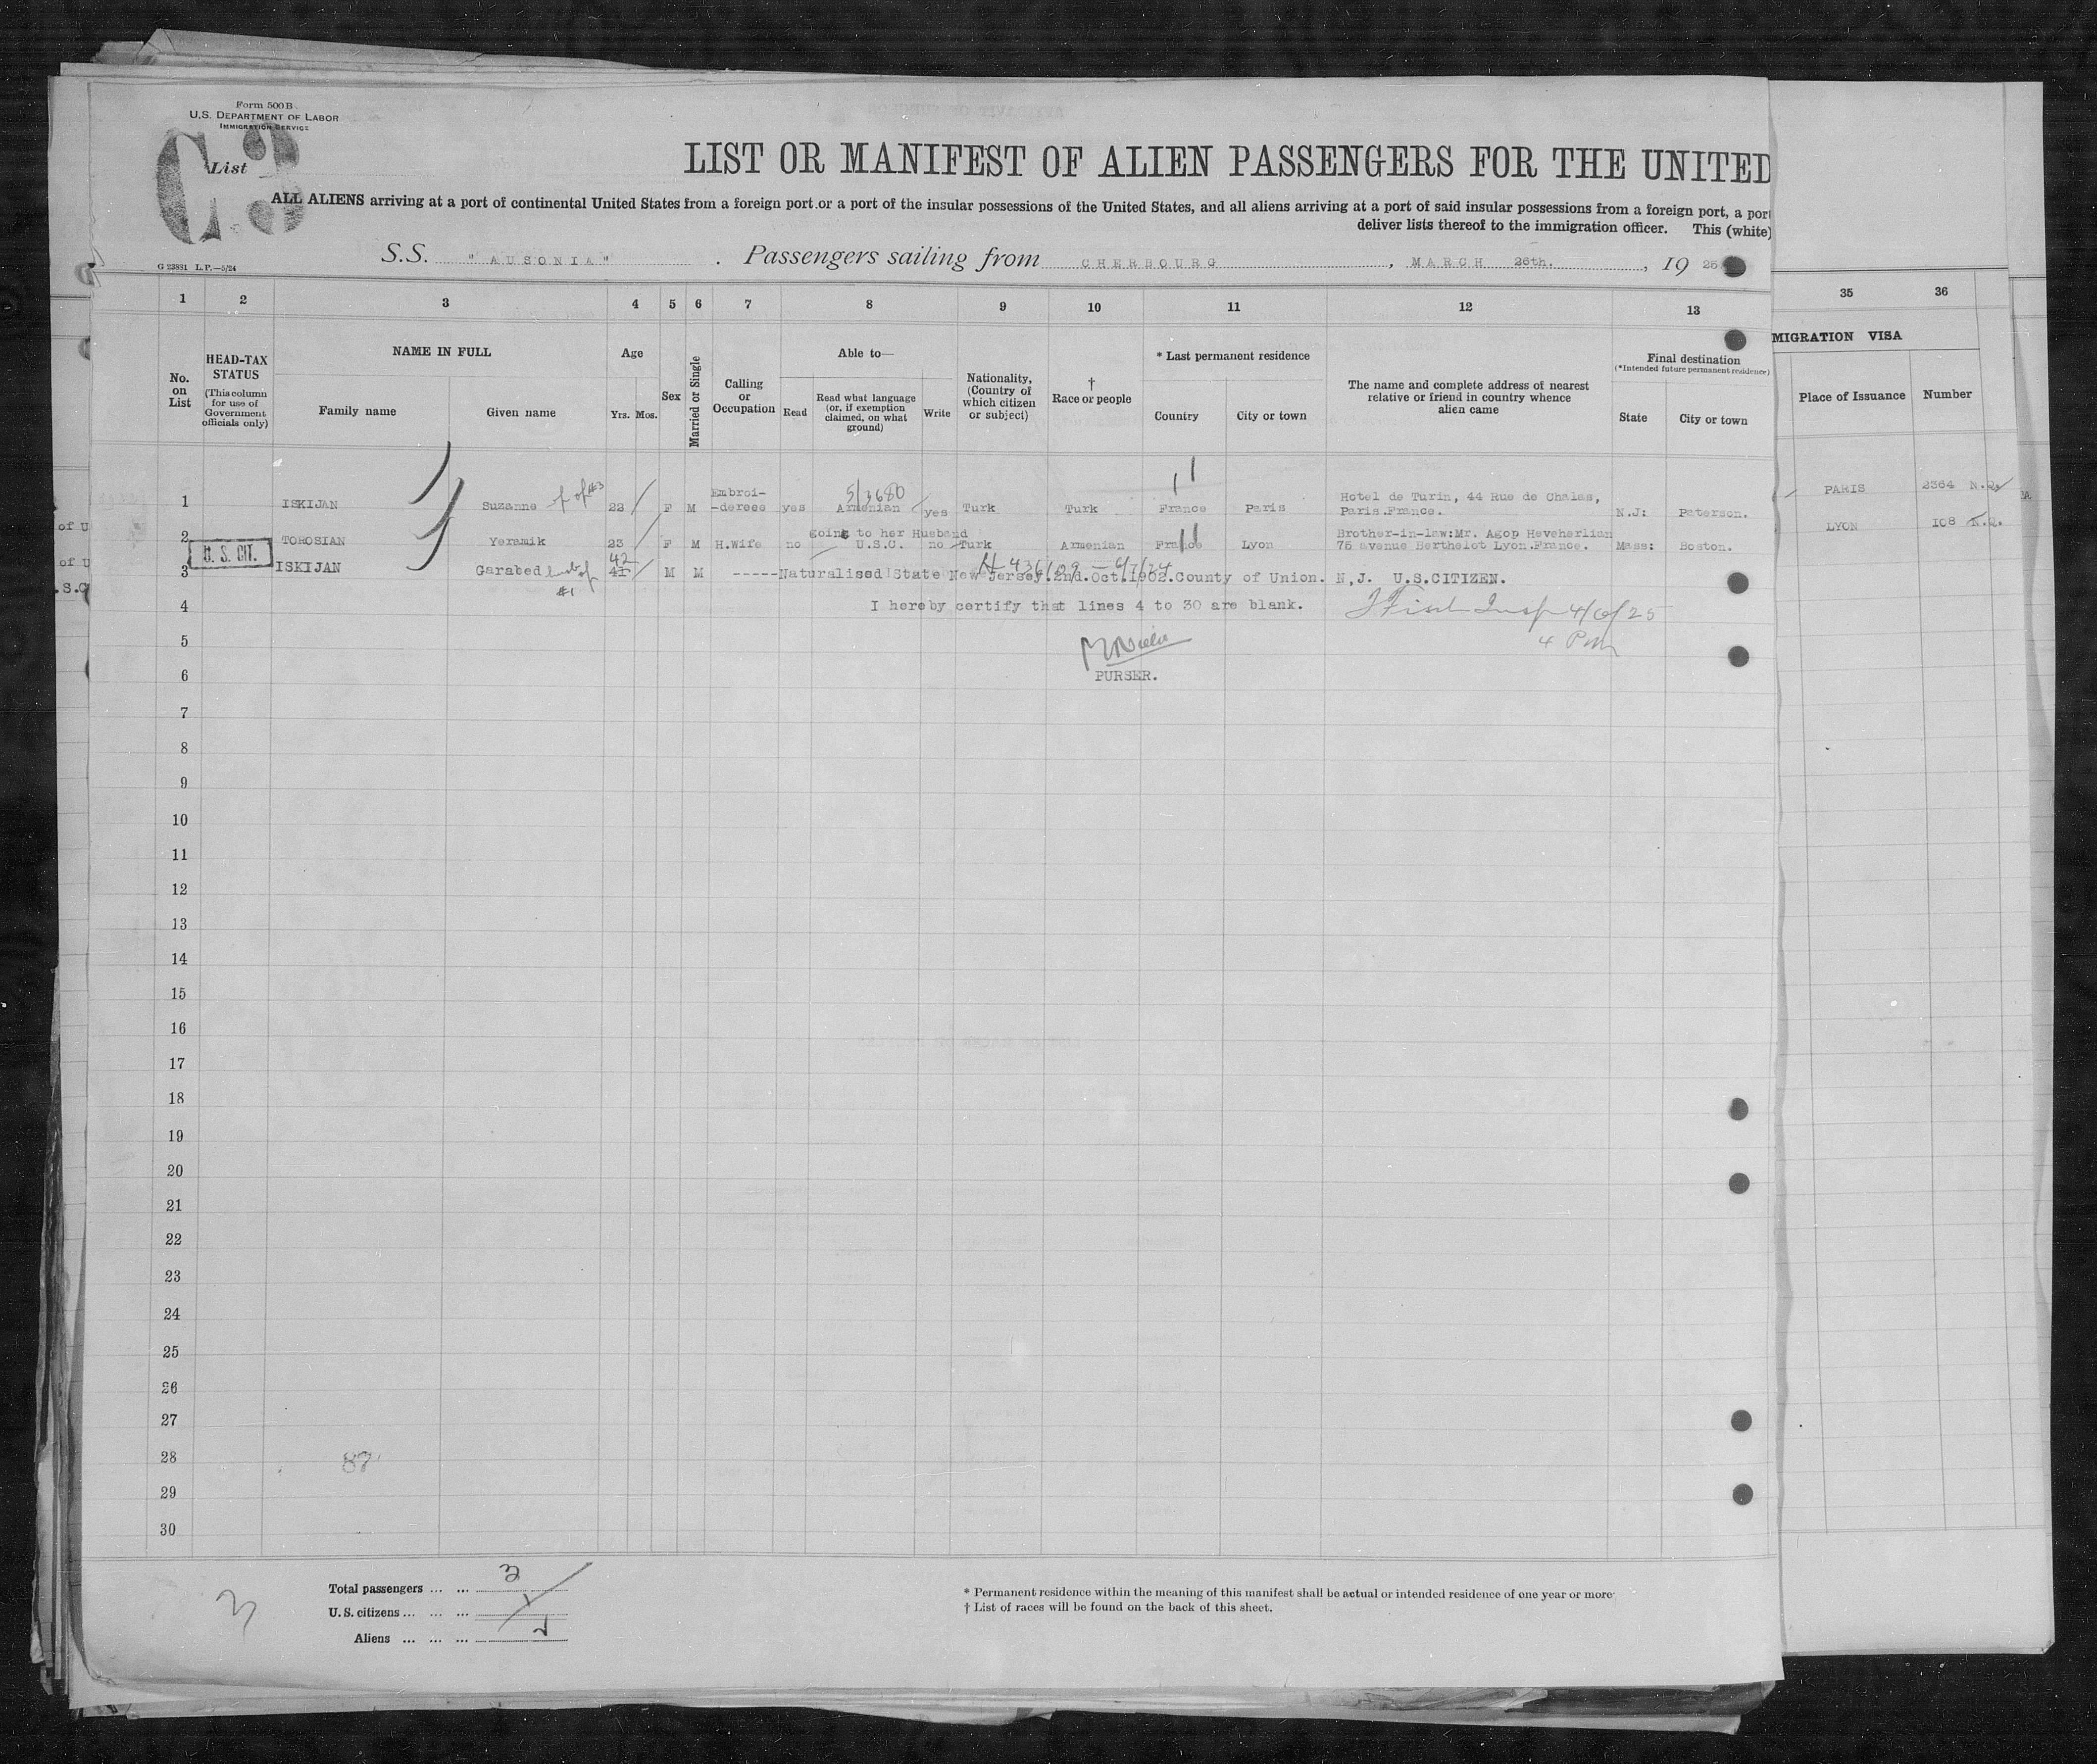 Form 500 B
U.S. DEPARTMENT OF LABOR
IMMIGRATION SERVICE
C 3
List
LIST OR MANIFEST OF ALIEN PASSENGERS FOR THE UNITED
ALL ALIENS arriving at a port of continental United States from a foreign port or a port of the insular possessions of the United States, and all aliens arriving at a port of said insular possessions from a foreign port, a port
deliver lists thereof to the immigration officer. This (white)
S.S. "AUSONIA". Passengers sailing from CHERBOURG, MARCH 26th., 1925
G 23881 L.P.—5/24
1 2 3 4 5 6 7 8 9 10 11 12 13 35 36
No. on List
HEAD-TAX STATUS
(This column for use of Government officials only)
NAME IN FULL
Family name
Given name
Age
Yrs. Mos.
Sex
Married or Single
Calling or Occupation
Able to—
Read
Read what language (or, if exemption claimed, on what ground)
Write
Nationality, (Country of which citizen or subject)
† Race or people
* Last permanent residence
Country
City or town
The name and complete address of nearest relative or friend in country whence alien came
Final destination
(*Intended future permanent residence)
State
City or town
MIGRATION VISA
Place of Issuance
Number
5/3680
1 ISKIJAN Suzanne of #3 22 F M Embroi-derees yes Armenian yes Turk Turk France Paris Hotel de Turin, 44 Rue de Chalas, Paris.France. N.J: Paterson. PARIS 2364 N.Q.
going to her Husband
2 TOROSIAN Yeramik 23 F M H.Wife no U.S.C. no Turk Armenian France Lyon Brother-in-law:Mr. Agop Heveherliun 75 avenue Berthelot Lyon.France. Mass: Boston. LYON 108 N.Q.
U. S. CIT.
3 ISKIJAN Garabed husb of #1 42 41 M M -----Naturalised State New Jersey.2nd.Oct.1902.County of Union. N,J. U.S.CITIZEN.
4 I hereby certify that lines 4 to 30 are blank. Insp 4/6/25
4 PM
5
6 PURSER.
7
8
9
10
11
12
13
14
15
16
17
18
19
20
21
22
23
24
25
26
27
28 87
29
30
3
Total passengers ... ... 3
U.S. citizens ... ... ... 1
Aliens ... ... ... 2
* Permanent residence within the meaning of this manifest shall be actual or intended residence of one year or more
† List of races will be found on the back of this sheet.
of U
of U
.S.C